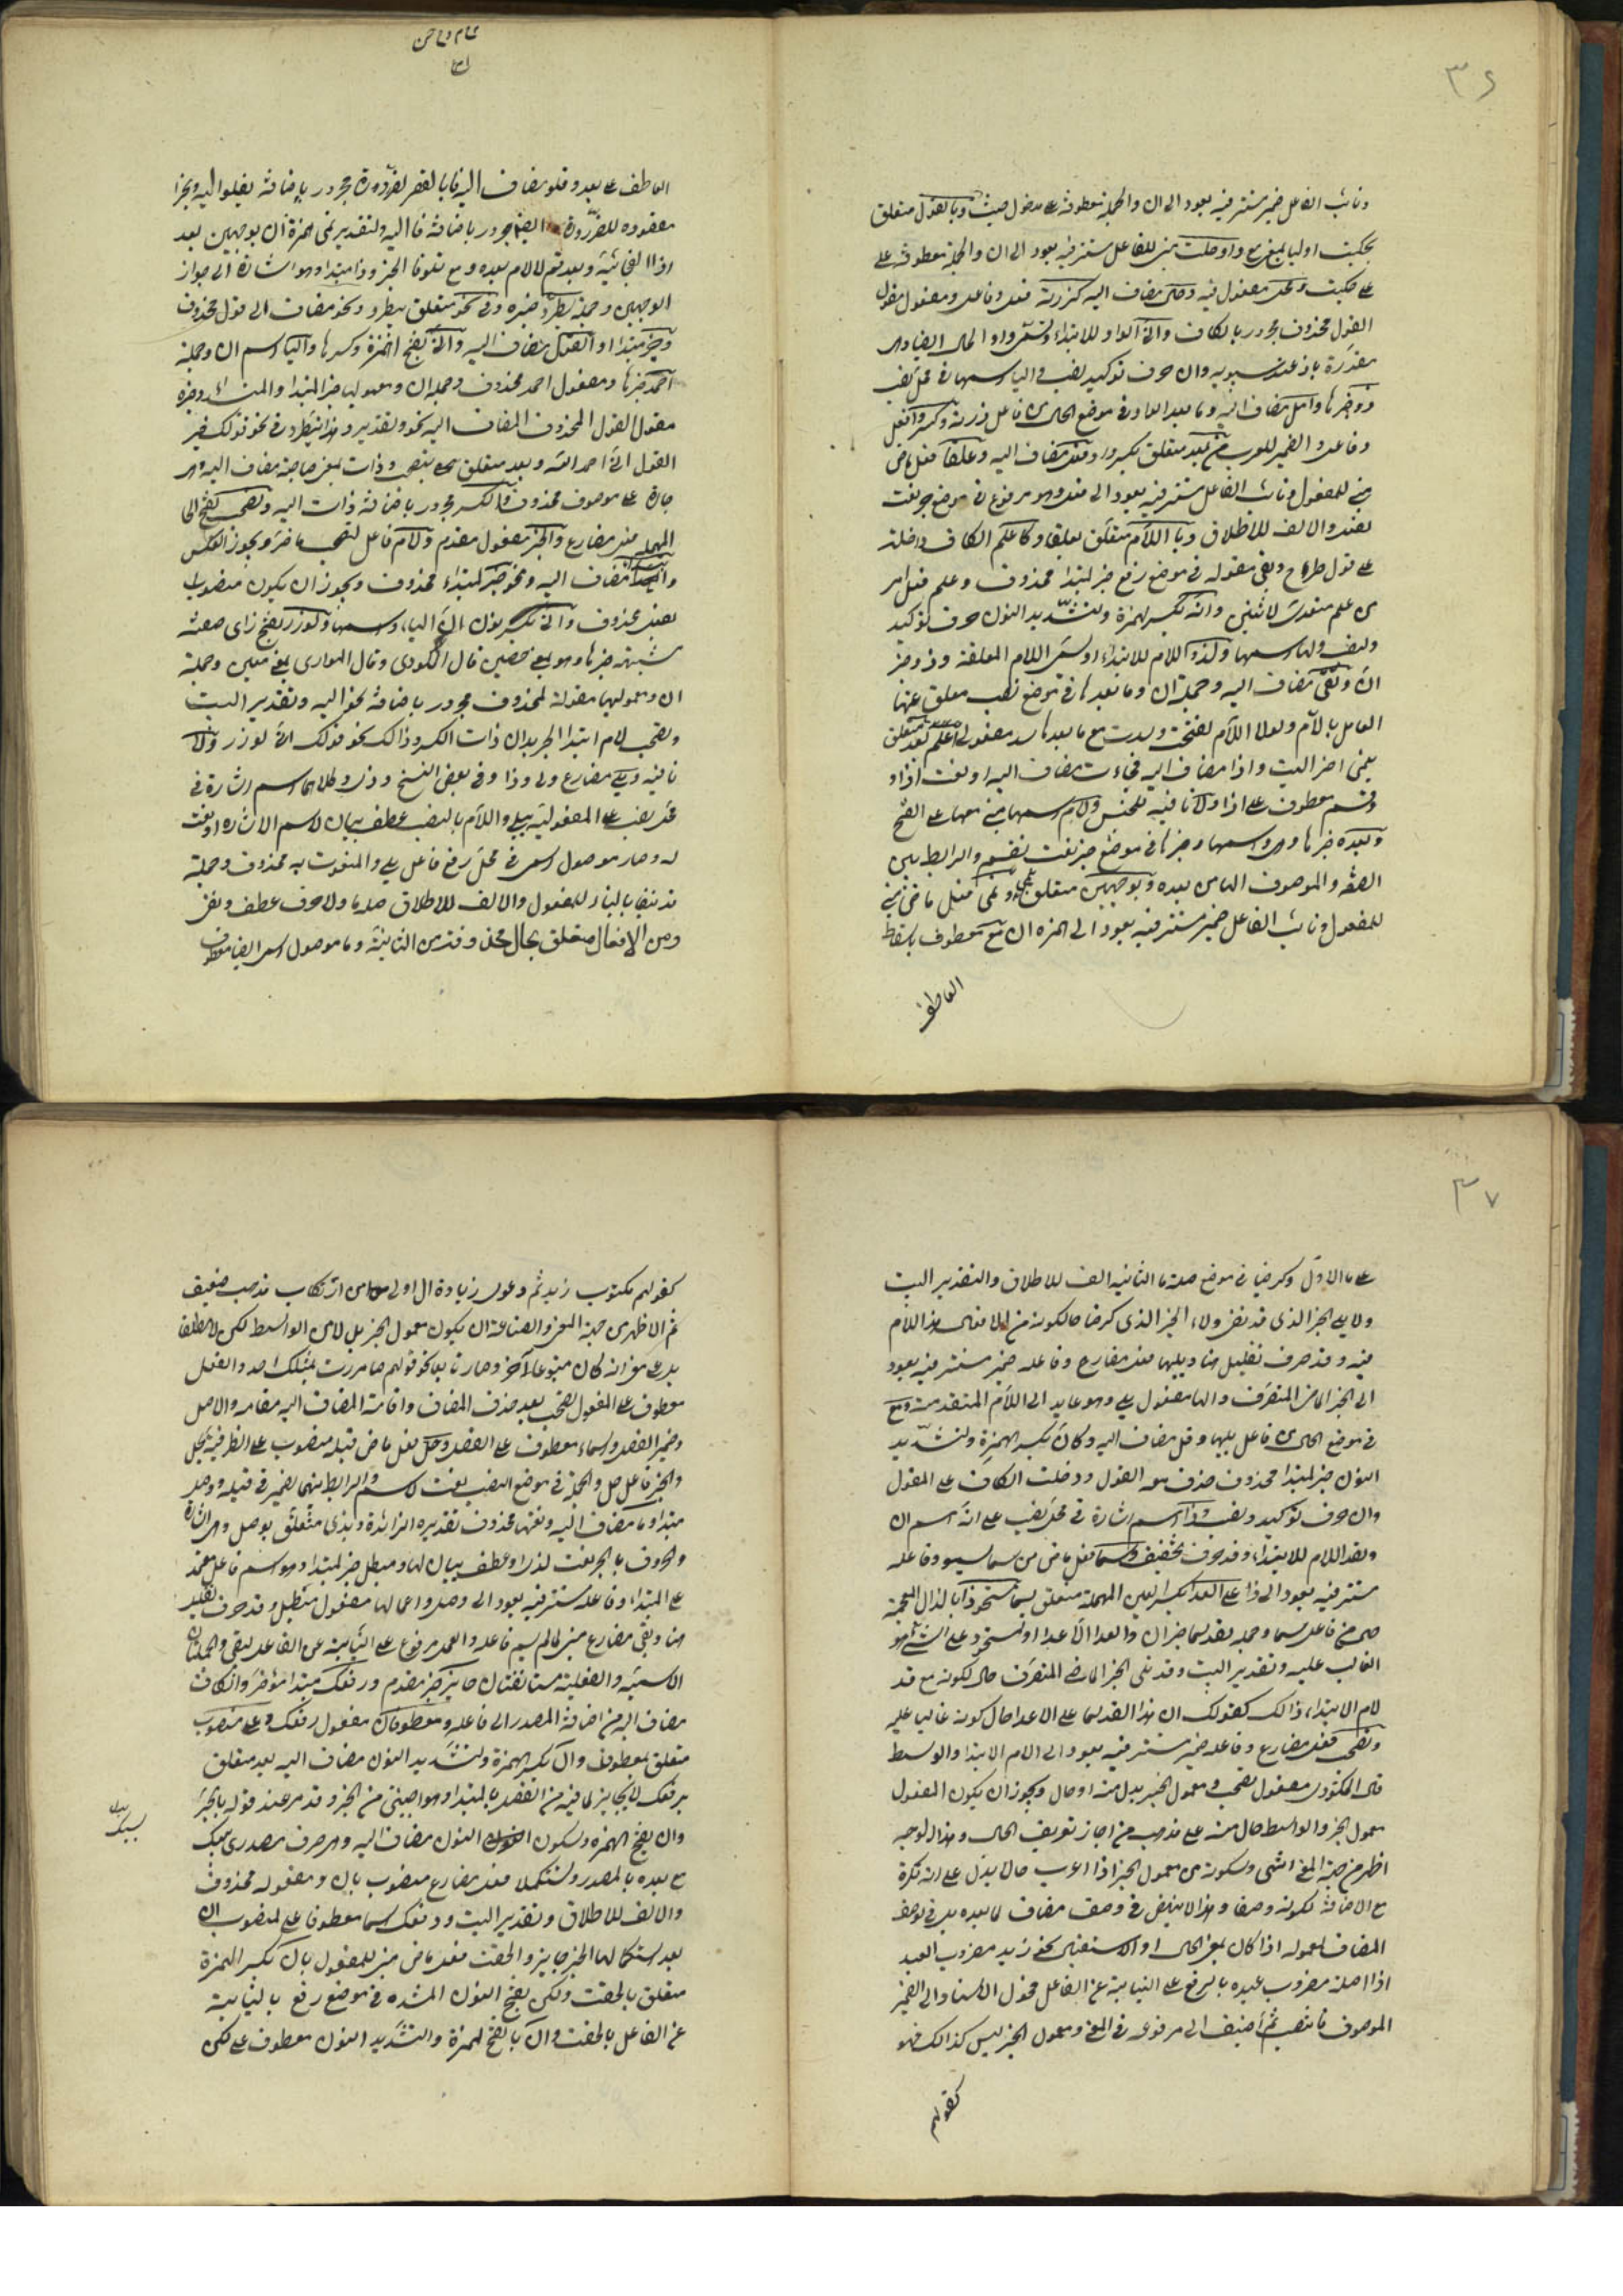 ٣٦
ونائب الفاعل ضمير مستتر فيه يعود الى ان والجملة معطوفة على مدخول حيث وبالقول متعلق
بحكيت او لبا لمعنى مع او حلت مبنى للفاعل مستتر فيه يعود الى ان والجملة معطوفة على
على حكيت ومحل مفعول فيه وحال مضاف اليه كزرته فعل وفاعل ومفعول مقول
القول محذوف مجرور بالكاف وانى الواو للابتداء وتسمى واو الحال ايضا وهى
مقدرة باذ عند سيبويه وان حرف توكيد ونصب والياء اسمها فى محل نصب
وذو خبرها وامل مضاف اليه وما بعد الواو فى موضع الحال من فاعل زرته وكسروا فعل
وفاعل والضمير للعرب من بعد متعلق بكسروا وفعل مضاف اليه وعلقا فعل ماض
مبنى للمفعول ونائب الفاعل مستتر فيه يعود الى فعل وهو مرفوع فى موضع جر نعت
لفعل والالف للاطلاق وباللام متعلق بعلقا وكاعلم الكاف داخلة
على قول مطروح وبقى مقوله فى موضع رفع خبر لمبتدأ محذوف وعلم فعل امر
من علم متعد لاثنين وانه بكسر الهمزة وتشديد النون حرف توكيد
ونصب والهاء اسمها ولذو اللام للابتداء وتسمى اللام المعلقة وذو خبر
ان وتقى مضاف اليه وجملة ان وما بعدها فى موضع نصب معلق عنها
العامل باللام ولولا اللام لفتحت وسدت مع ما بعدها مسد مفعولى اعلم بعد متعلق
بنمى اخر البيت واذا مضاف اليه فجاءت مضاف اليه او نعت اذا او
وقسم معطوف على اذا ولا نافية للجنس ولام اسمها مبنى معها على الفتح
وبعده خبرها وهى واسمها وخبرها فى موضع جر نعت لقسم والرابط بين
الصفة والموصوف الهاء من بعده وبوجهين متعلق بنمى ونمى فعل ماض مبنى
للمفعول ونائب الفاعل ضمير مستتر فيه يعود الى همزة ان مع معطوف باسقاط
العاطف
العاطف على بعد وتلو مضاف اليه فا بالقصر لضرورة مجرور باضافة تلو اليه والجزا
مقصورة للضرورة ايضا مجرور باضافة فا اليه والتقدير نمى همزة ان بوجهين بعد
اذا الفجائية وبعد قسم لا لام بعده ومع تلو فا الجزا وذا مبتدأ وهو اشارة الى جواز
الوجهين وجملة يطرد خبره وفى نحو متعلق بيطرد ونحو مضاف الى قول محذوف
وخير مبتدأ والقول مضاف اليه وانى بفتح الهمزة وكسرها والياء اسم ان وجملة
احمد خبرها ومفعول احمد محذوف وجملة ان ومعموليها خبر المبتدأ والمبتدأ وخبره
مقول القول المحذوف المضاف اليه نحو والتقدير وهذا يطرد فى نحو قولك خير
القول انى احمد الله وبعد متعلق بتصحب وذات بمعنى صاحبة مضاف اليه وهى
جارية على موصوف محذوف والكسر مجرور باضافة ذات اليه وتصحب بفتح الحاء
المهملة فعل مضارع والخبر مفعول مقدم ولام فاعل تصحب مؤخر ويجوز العكس
وابتداء مضاف اليه ونحو خبر لمبتدأ محذوف ويجوز ان يكون منصوبا
بفعل محذوف وانى بكسر نون ان الياء واسمها ولوزر بفتح زاى صفة
مشبهة خبرها وهو بمعنى حصين قال المكودى وقال الهوارى بمعنى معين وجملة
ان ومعموليها مقولة لمحذوف مجرور باضافة نحو اليه وتقدير البيت
وتصحب لام ابتدا الخبر بعد ان ذات الكسر وذالك نحو قولك انى لوزر ولا
نافية ويلى مضارع ولى وذا وفى بعض النسخ وذى وكلاهما اسم اشارة فى
محل نصب على المفعولية بيلى واللام بالنصب عطف بيان لاسم الاشارة او نعت
له وما موصول اسمى فى محل رفع فاعل يلى والمنعوت به محذوف وجملة
قد نفيا بالبناء للمفعول والالف للاطلاق صلة ما ولا حرف عطف ونفى
ومن الافعال متعلق بحال محذوفة من الثانية وما موصول اسمى ايضا معطوف
٣٧
على ما الاول وكرضيا فى موضع صلة ما الثانية الف للاطلاق والتقدير البيت
ولا يلى الخبر الذى قد نفى ولاء الخبر الذى كرضا حالكونه من الافعال هذا اللام
فيه وقد حرف تقليل هنا ويليها فعل مضارع وفاعله ضمير مستتر فيه يعود
الى الخبر الماضى المتصرف والها مفعول يلى وهو عايد الى اللام المتقدمة ومع
فى موضع الحال من فاعل يليها وقد مضاف اليه وكان بكسر الهمزة وتشديد
النون خبر لمبتدأ محذوف حذف معه القول ودخلت الكاف على المقول
وان حرف توكيد ونصب وذا اسم اشارة فى محل نصب على انه اسم ان
ولقد اللام للابتداء وقد حرف تحقيق وسما فعل ماض من سما يسمو وفاعله
مستتر فيه يعود الى ذا على العدا بكسر العين المهملة متعلق بسما مستحوذا بالذال المعجمة
حال من فاعل سما وجملة لقد سما خبر ان والعدا الاعدا والمستحوذ على الشئ هو
الغالب عليه وتقدير البيت وقد تلى الخبر الماضى المتصرف حال لكونه مع قد
لام الابتداء ذالك كقولك ان هذا لقد سما على الاعدا حال كونه غالبا عليه
وتصحب فعل مضارع وفاعله ضمير مستتر فيه يعود الى لام الابتدا والواسط
قال المكودى مفعول تصحب ومعمول الخبر بدل منه او حال ويجوز ان يكون المفعول
معمول الخبر والواسط حال منه على مذهب من اجاز تعريف الحال وهذا الوجه
اظهر من جهة المعنى انتهى وسكونه من معمول الخبر اذا اعرب حالا يدل على انه نكرة
مع الاضافة لكونه وصفا وهذا لا ينهض فى وصف مضاف لما بعده بل فى الوصف
المضاف لمعموله اذا كان بمعنى الحال او الاستقبال نحو زيد مضروب العبد
اذا اصله مضروب عبده بالرفع على النيابة عن الفاعل فحول الاسناد الى الضمير
الموصوف فانتصب ثم أضيف الى مرفوعه فى المعنى ومعمول الخبر ليس كذالك فهو
كقولهم
كقولهم مكتوب زيد ثم دعوى زيادة ال اولى من ارتكاب مذهب ضعيف
ثم الاظهر من جهة المعنى والصناعة ان يكون معمول الخبر بدلا من الواسط لكن لا مطلقا
بل على انه كان متبوعا لآخر وصار تابعا كقولهم ما مررت بمثلك احد والفصل
معطوف على المفعول تصحب بعد حذف المضاف واقامة المضاف اليه مقامه والاصل
وضمير الفصل واسما معطوف على الفصل وحل فعل ماض قبله منصوب على الظرفية بحل
والخبر فاعل حل والجملة فى موضع النصب نعت لاسم والرابط بينهما الضمير فى قبله ووصل
مبتدأ وما مضاف اليه ونعتها محذوف تقديره الزائدة وبذى متعلق بوصل وهى اشارة
والحروف بالجر نعت لذى او عطف بيان لها ومبطل خبر المبتدأ وهو اسم فاعل معتمد
على المبتدأ وفاعله مستتر فيه يعود الى وصل واعمالها مفعول مبطل وقد حرف تقليل
هنا وبقى مضارع مبنى لما لم يسم فاعله والعمل مرفوع على النيابة عن الفاعل ليبقى والجملتان
الاسمية والفعلية مستانفتان جايز خبر مقدم ورفعك مبتدأ مؤخر والكاف
مضاف اليه من اضافة المصدر الى فاعله ومعطوفا مفعول رفعك وعلى منصوب
متعلق بمعطوف وان بكسر الهمزة وتشديد النون مضاف اليه بعد متعلق
برفعك لا بجايز لما فيه من الفصل بالمبتدأ وهو اجنبى من الخبر وقد مر عند قوله بالجر
وان بفتح الهمزة وسكون النون مضاف اليه وهى حرف مصدرى يسبك
يسبك
مع بعده بالمصدر وتستكملا فعل مضارع منصوب بان ومفعوله محذوف
والالف للاطلاق وتقدير البيت ورفعك اسما معطوفا على منصوب ان
بعد استكمالها الخبر جايز والحقت فعل ماض مبنى للمفعول بان بكسر الهمزة
متعلق بالحقت ولكن بفتح النون المشدده فى موضع رفع بالنيابة
عن الفاعل بالحقت وان بالفتح الهمزة والتشديد النون معطوف على لكن